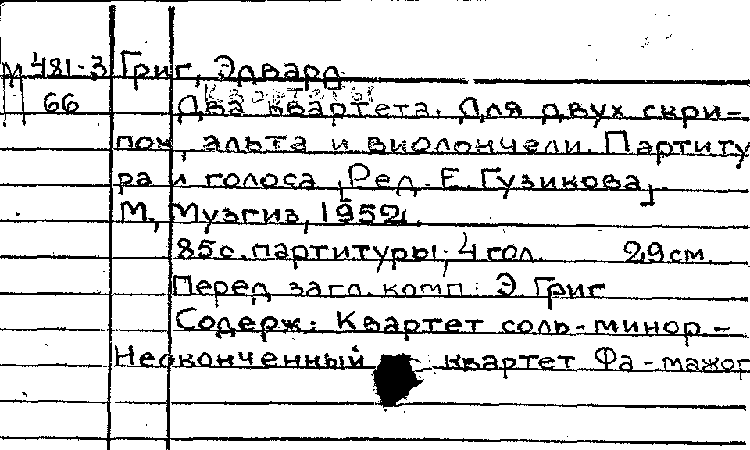 М 481-3 Григ, Эдвард
66 Два квартета. Для двух скри-
пок, альта и виолончели. Партиту
ра и голоса [Ред. Е. Гузикова].
М., Музгиз, 1952.
85 с. партитуры; 4 гол. 29 см.
Перед загл. комп: Э. Григ
Содерж: Квартет соль-минор. -
Неоконченный квартет Фа-мажор